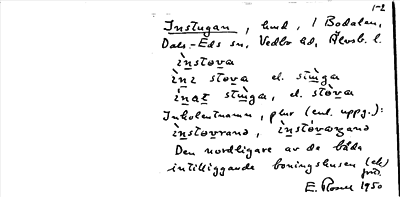 1-2
Instugan, hmd, i Bodalen,
Dals-Eds sn, Vedbo hd, Älvsb. l.
ìnstova
ìni stova el. stùga
inat stùga, el. stòva
Inbolentnamn, plur (enl. uppg.):
ìnstovrana, ìnstòvargana
Den nordligare av de båda
intilliggande boningshusen (ek)
E. Rosell 1950